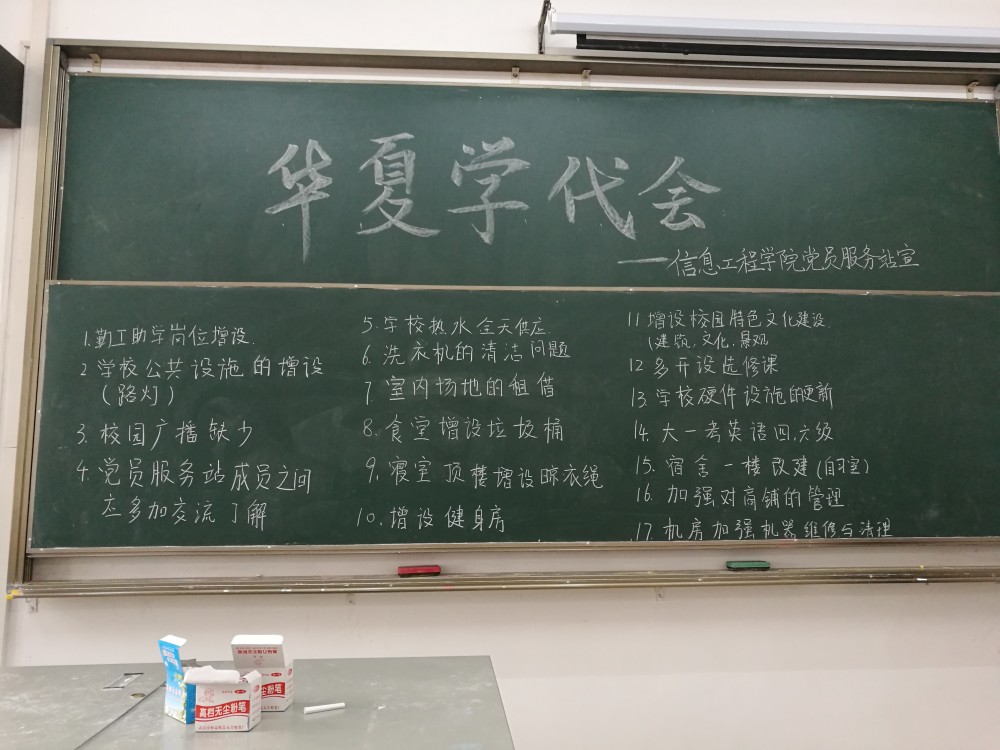 华夏学代会
——信息工程学院党员服务站宣
1.勤工助学岗位增设.
2 学校公共设施的增设
(路灯)
3. 校园广播缺少
4. 党员服务站成员之间
应多加交流了解
5. 学校热水全天供应.
6. 洗衣机的清洁问题
7 室内场地的租借
8. 食堂增设垃圾桶
9. 寝室顶楼增设晾衣绳
10. 增设健身房
11 增设校园特色文化建设.
(建筑.文化.景观
12 多开设选修课
13. 学校硬件设施的更新
14. 大一考英语四.六级
15. 宿舍一楼改建(自习室)
16. 加强对商铺的管理
17. 机房加强机器维修与清理
高档无尘粉笔
无尘粉笔